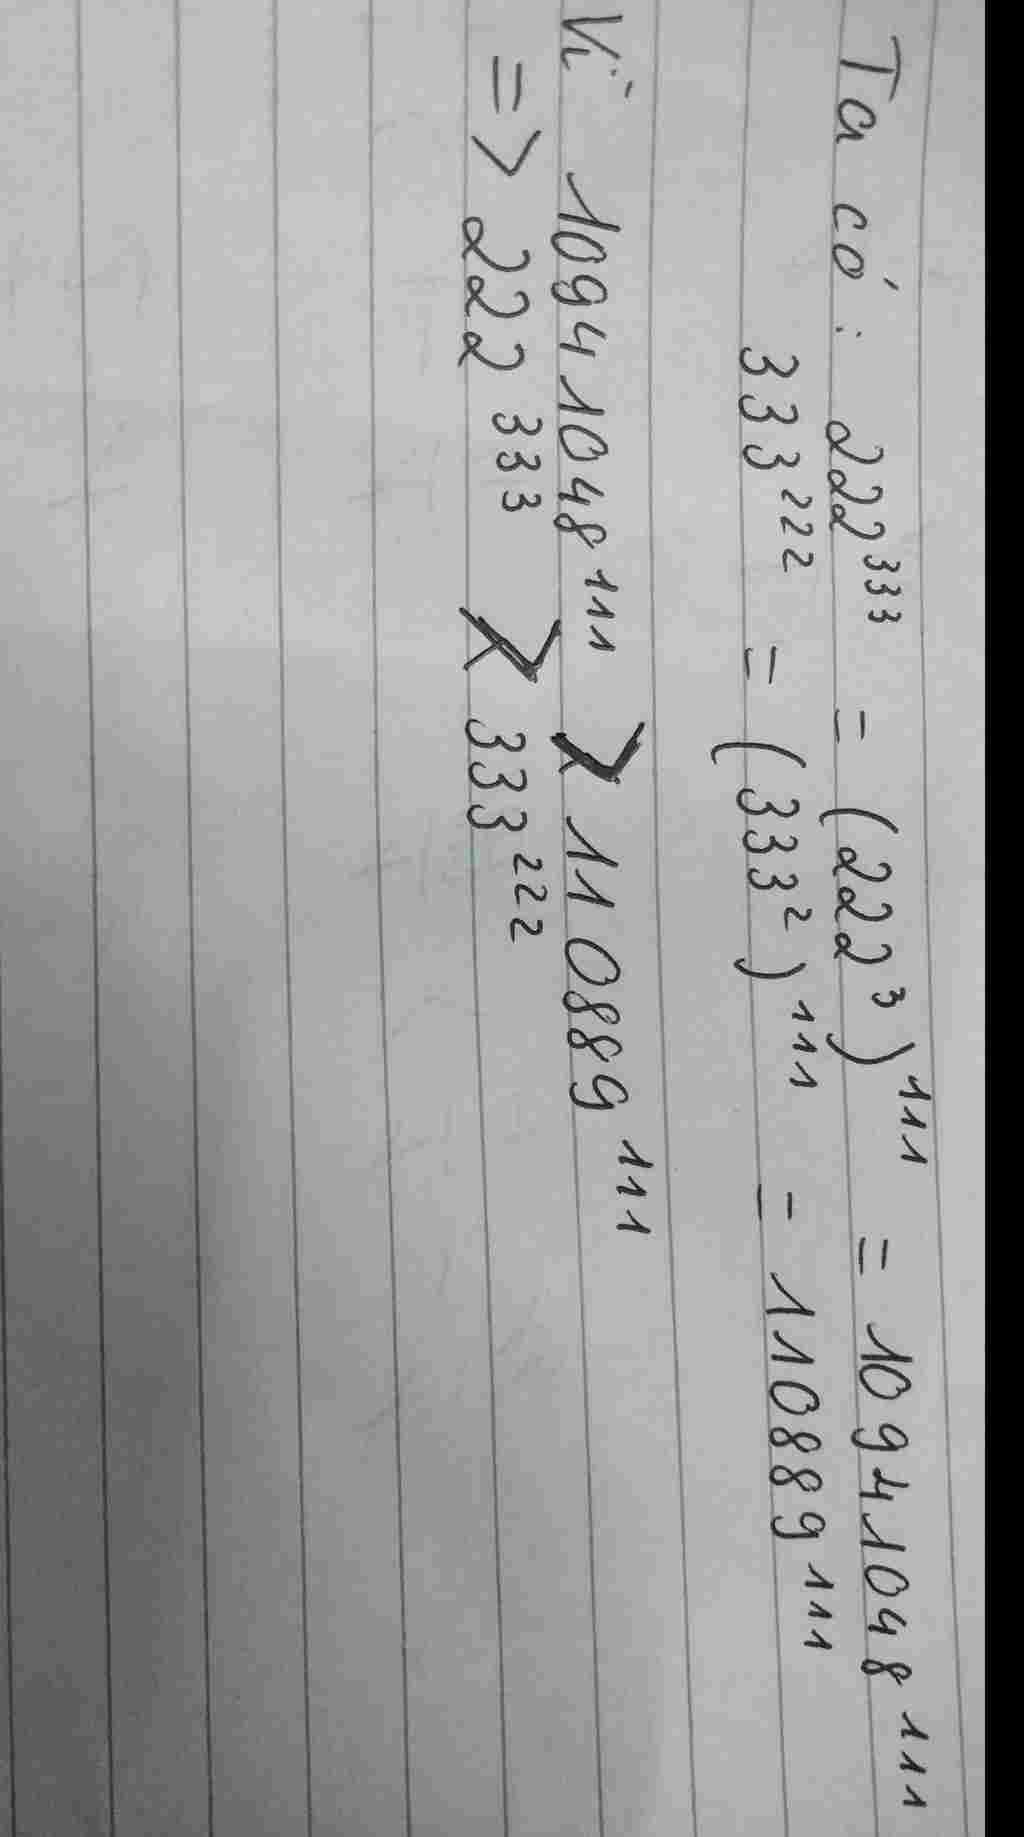 Ta có: 222³³³ = (222³)¹¹¹ = 10941048¹¹¹
333²²² = (333²)¹¹¹ = 110889¹¹¹
Vì 10941048¹¹¹ > 110889¹¹¹
=> 222³³³ > 333²²²